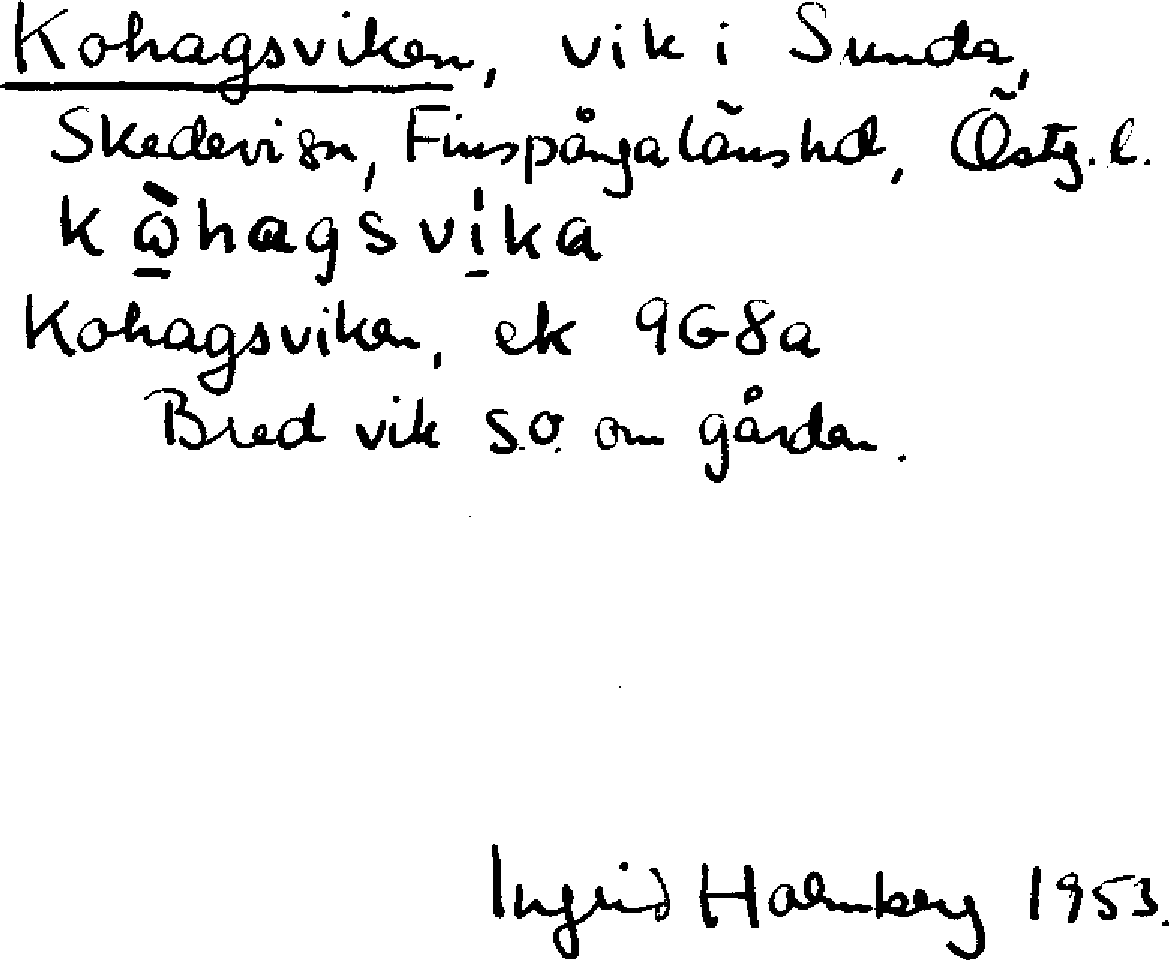 Kohagsviken, vik i Sunda,
Skedevi sn, Finspånga läns hd, Östg. l.
kὼhagsvika
Kohagsviken, ek 9G8a
Bred vik S.O. om gården.
Ingrid Holmberg 1953.